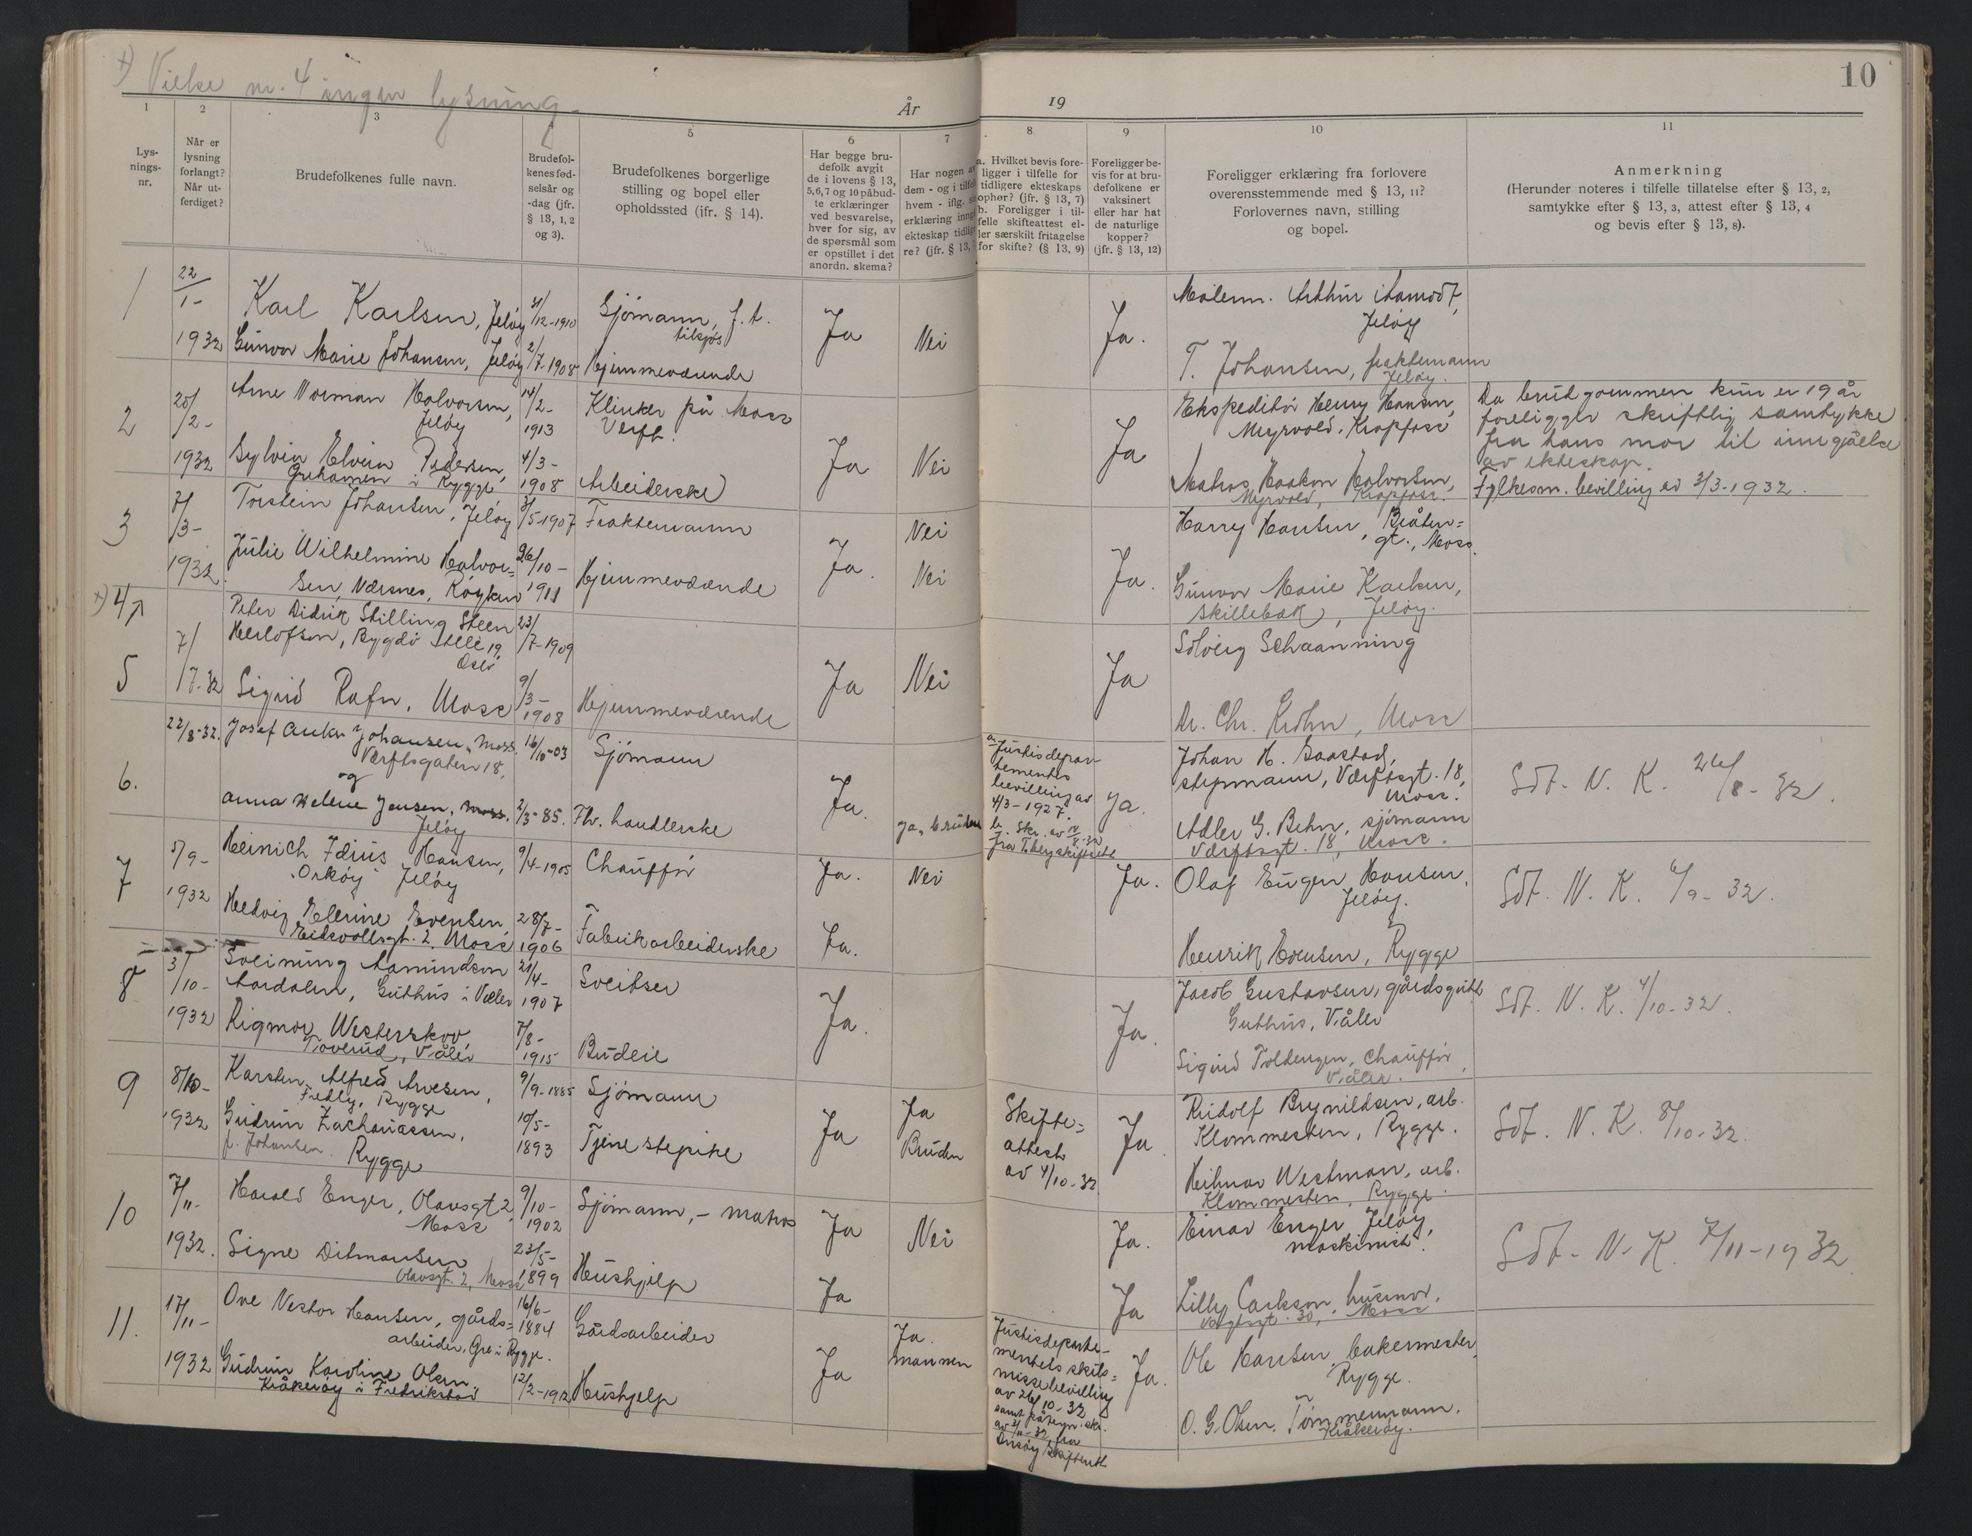 +) Vielse nr. 4 ingen lysning.
År 19
10
1
2
3
4
5
6
7
8
9
10
11
Lys-
nings-
nr.
Når er
lysning
forlangt?
Når ut-
ferdiget?
Brudefolkenes fulle navn.
Brudefol-
kenes fød-
selsår og
-dag (jfr.
§ 13, 1, 2
og 3).
Brudefolkenes borgerlige
stilling og bopel eller
opholdssted (ifr. § 14).
Har begge bru-
defolk avgit
de i lovens § 13,
5,6,7 og 10 påbud-
te erklæringer
ved besvarelse,
hver for sig, av
de spørsmål som
er opstillet i det
anordn. skema?
Har nogen av
dem - og i tilfelle
hvem - iflg.
erklæring inngå
ekteskap tidlige-
re? (jfr. § 13,
a. Hvilket bevis fore-
ligger i tilfelle for
tidligere ekteskaps
ophør? (jfr. § 13, 7)
b. Foreligger i til-
felle skifteattest el-
ler særskilt fritagelse
for skifte? (§ 13, 9)
Foreligger be-
vis for at bru-
defolkene er
vaksinert
eller har hat
de naturlige
kopper?
(jfr. § 13, 12)
Foreligger erklæring fra forlovere
overensstemmende med § 13, 11?
Forlovernes navn, stilling
og bopel.
Anmerkning
(Herunder noteres i tilfelle tillatelse efter § 13, 2,
samtykke efter § 13, 3, attest efter § 13, 4
og bevis efter § 13, 8).
1
22/1-
1932
Karl Karlsen, Jeløy
31/12-1910
Sjømann, f. t.
tilsjøs
Gunvor Marie Johansen, Jeløy
2/7-1908
Hjemmeværende
Ja
Nei
Ja.
Malerm. Arthur Aamodt,
Jeløy
T. Johansen, fraktemann
Jeløy.
2
20/2-
1932
Arne Norman Halvorsen,
Jeløy
14/2-
1913
Klinker på Moss
Verft.
Sylvia Elvira Pedersen,
i Rygge
4/3-
1908
Arbeiderske
Ja
Nei
Ja
Ekspeditør Henry Hansen,
Myrvold, Krapfoss
Matros Haakon Halvorsen,
Myrvold, Krapfoss.
Da brudgommen kun er 19 år
foreligger skriftlig samtykke
fra hans mor til inngåelse
av ekteskap.
Fylkesm. bevilling av 2/3-1932.
3
7/3-
1932
Torstein Johansen, Jeløy
31/5-1907
Fraktemann
Julie Wilhelmine Halvor=
sen, Nærsnes, Røyken
26/10-
1911
Hjemmeværende
Ja.
Nei
Nei
Ja.
Harry Hansen, Bråten=
gt., Moss.
Gunvor Marie Karlsen,
Skillebæk, Jeløy.
+) 4
5
7/
/7-32
Peter Didrik Stilling Steen
Herlofson, Bygdø 19,
Oslo
23/7-1909
Sigrid Rafn, Moss
9/3-
1908
Hjemmeværende
Ja
Nei
Ja
Solveig Schaanning
Dr. Chr. Krohn, Moss
6.
22/8-32.
Josef Anker Johansen, Moss.
Værftsgaten 18,
og
16/10-03
Sjømann
Anna Helene Jensen, Moss.
Jeløy
2/3-85.
Hv. handlerske
Ja.
Ja, bruden
a. Justisdepar-
tementes
bevilling av
4/3-1927.
b. Skr. av
fra skifterett
Ja.
Johan H. Saastad,
støpmann, Værftsgt. 18,
Moss.
Adler G. Behn, sjømann
Værftsgt. 18, Moss.
Sdt. N. K. 26/8-32.
7
5/9-
1932
Heinrich Idius Hansen,
"Orkøy" Jeløy
9/4-1905
Chauffør
Hedvig Elerine Evensen,
Eidsvollsgt. 2, Moss
28/7-
1906
Fabrikarbeiderske
Ja.
Ja.
Nei
Ja.
Olaf Eugen Hansen,
Jeløy.
Henrik Evensen, Rygge
Sdt. N. K. 6/9-32.
8
3/10-
1932
Sveinung Aamundson
Aardalen, Guthus i Våler
21/4-
1907
Sveitser
Rigmor Westerskov,
Toverud, Våler
7/8-
1915
Budeie
Ja.
Ja.
Jacob Gustavsen, gårdsgutt
Guthus, Våler
Sigurd Toldengen, Chauffør,
Våler.
Sdt. N. K. 4/10-32.
9
8/10-
1932
Karsten Alfred Arvesen,
Fredly, Rygge
9/9-1885
Sjømann
Gudrun Zachariassen,
f. Johansen. Rygge
10/5-
1893
Tjenestepike
Ja
Ja
Bruden
Skifte=
attest
av 4/10-32
Ja.
Rudolf Brynildsen, arb.
Klommesten, Rygge.
Hilmar Westman, arb.
Klommesten, Rygge.
Sdt. N. K. 8/10-32.
10
7/11-
1932.
Harald Enger, Olavsgt 2,
Moss
9/10-
1902
Sjømann, - matros
Signe Ditmansen
Olavsgt. 2, Moss
23/5-
1899
Hushjelp
Ja
Ja
Nei
Ja.
Ja
Einar Enger, Jeløy,
maskinist.
Lilly Carlson, husmor,
Vogtsgt. 30, Moss
Sdt. N. K. 7/11-1932
11.
17/11-
1932
Ove Nestor Hansen, gårds=
arbeider, Gre i Rygge.
16/6-
1884
Gårdsarbeider
Gudrun Karoline Olsen
Kråkerøy i Fredrikstad
12/2-1912
Hushjelp
Ja
Ja.
mannen
Justisdeparte-
mentets skils=
missebevilling
av 26/10-32
samt skr.
av 3/11-32 fra
Onsøy skifterett
Ja.
Ole Hansen, bakermester,
Rygge.
O. G. Olsen. Tømmermann.
Kråkerøy.